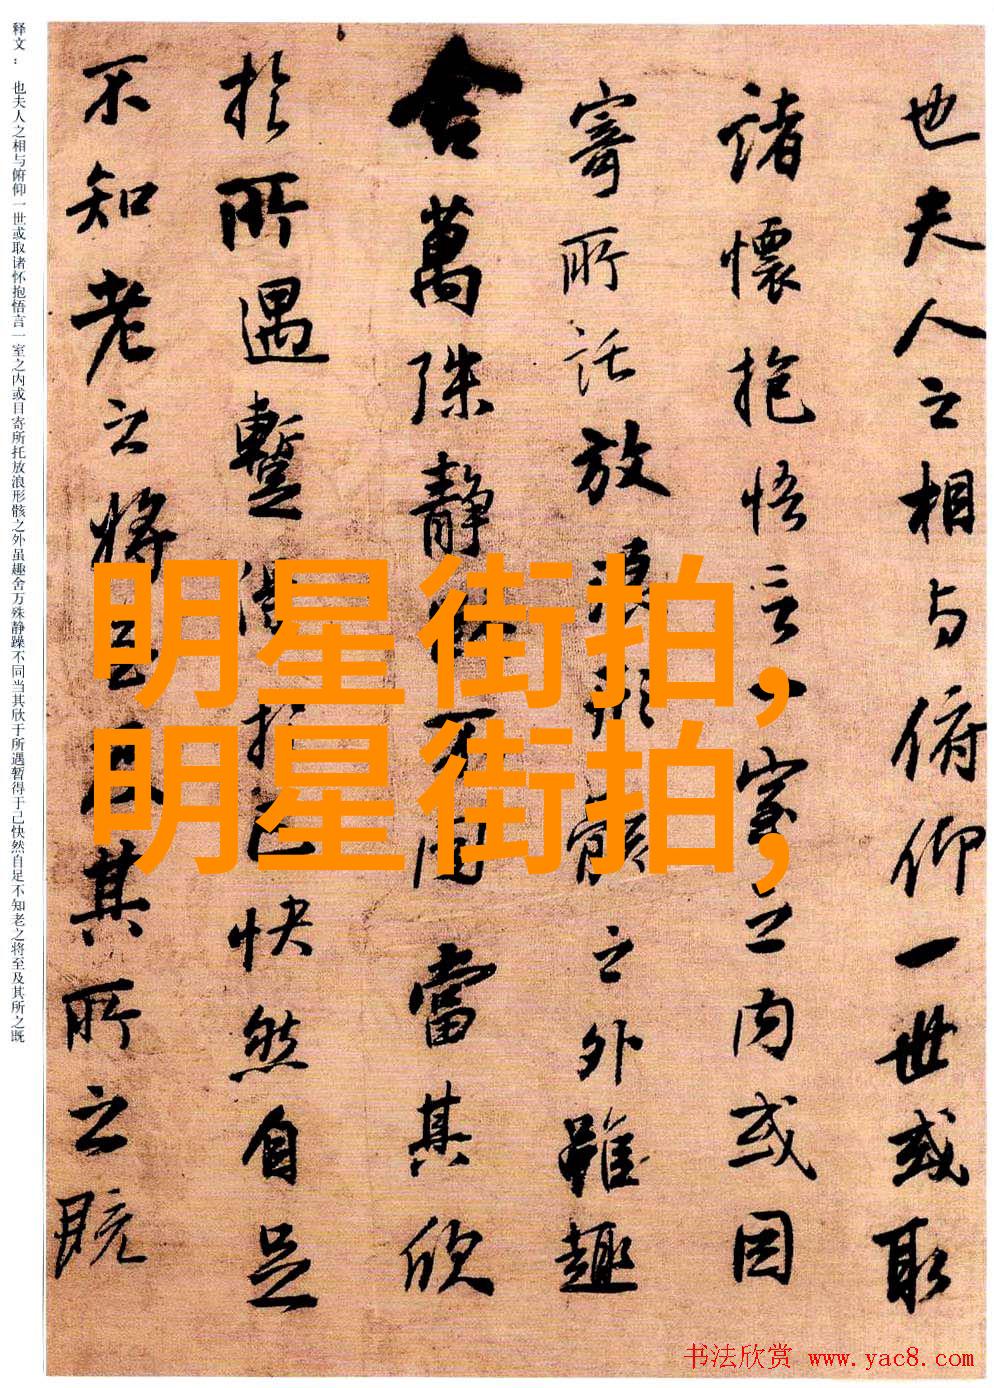 也夫人之相与俯仰一世或取
諸懷抱悟言一室之内或因
寄所託放浪形骸之外雖趣
舍萬殊静躁不同當其欣
於所遇蹔得於己快然自足
不知老之將至及其所之既
释文： 也夫人之相与俯仰一世或取诸怀抱悟言一室之内或目寄所托放浪形骸之外虽趣舍万殊静躁不同当其欣于所遇暂得于己快然自足不知老之将至及其所之既
明星街拍,
明星街拍,
书法欣赏 www.yac8.com